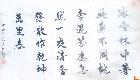 冰雪林中著
此身不同桃
李混芳塵忽
然一夜清香
發散作乾坤
萬里春